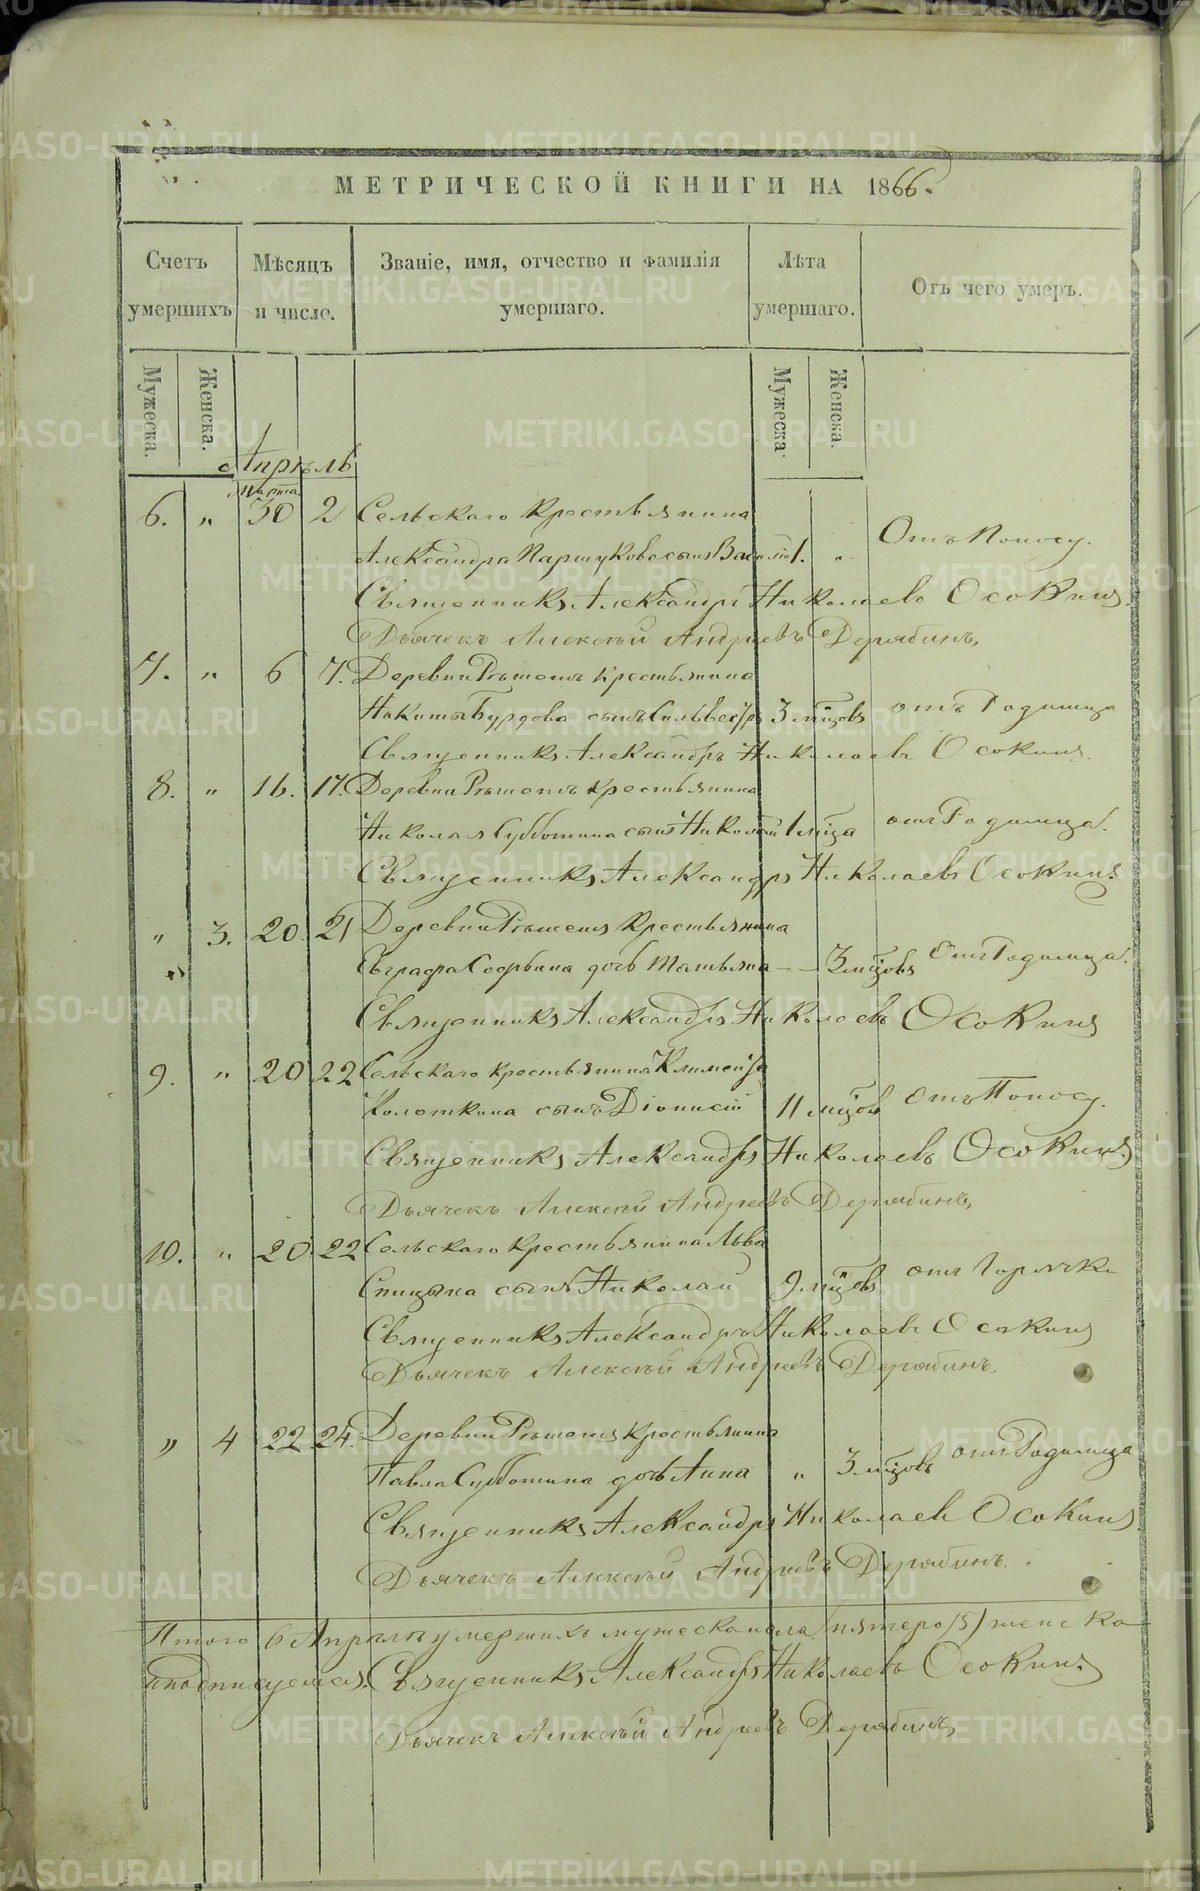 МЕТРИЧЕСКОЙ КНИГИ НА 1866.
Счетъ умершихъ
Мѣсяцъ и число.
Званіе, имя, отчество и фамилія умершаго.
Лѣта умершаго.
Отъ чего умеръ.
Мужеска. Женска. Мужеска Женска.
Апрѣль
марта
6. " 30 2 Сельскаго крестьянина
Александра Паршукова сынъ Василій 1. " Отъ Поносу.
Священникъ Александръ Николаевъ Осокинъ.
Дьячекъ Алексѣй Андреевъ Дерябинъ,
7. " 6 7. Деревни Рѣшетъ крестьянина
Никиты Бурдова сынъ Сильвестръ 3 мѣцовъ отъ Родимца
Священникъ Александръ Николаевъ Осокинъ.
8. " 16. 17. Деревни Рѣшетъ крестьянина
Николая Субботина сынъ Николай 1 мѣца отъ Родимца.
Священникъ Александръ Николаевъ Осокинъ
" 3. 20. 21 Деревни Рѣшетъ крестьянина
Евграфа дочь Татьяна 3 мѣцовъ Отъ Родимца.
Священникъ Александръ Николаевъ Осокинъ
9. " 20 22 Сельскаго крестьянина
Колоткина сынъ Діонисій 11 мѣцовъ Отъ Поносу.
Священникъ Александръ Николаевъ Осокинъ
Дьячекъ Алексѣй Андреевъ Дерябинъ,
10. " 20. 22 Сельскаго крестьянина Льва
Спицына сынъ Николай 9 мѣцовъ отъ Горячки
Священникъ Александръ Николаевъ Осокинъ
Дьячекъ Алексѣй Андреевъ Дерябинъ.
" 4 22 24. Деревни Рѣшетъ крестьянина
Павла Субботина дочь Анна " 3 мѣцовъ отъ Родимца
Священникъ Александръ Николаевъ Осокинъ
Дьячекъ Алексѣй Андреевъ Дерябинъ.
Итого въ Апрѣлѣ умершихъ мужеска пола пятеро /5/ женска
подписуемся. Священникъ Александръ Николаевъ Осокинъ
Дьячекъ Алексѣй Андреевъ Дерябинъ
METRIKI.GASO-URAL.RU